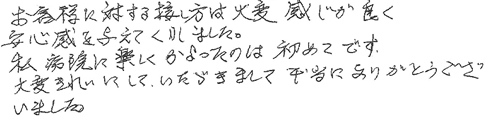 お客様に対する接し方は大変感じが良く
安心感を与えてくれました。
私病院に楽しくかよったのは初めてです。
大変きれいにして、いただきまして本当にありがとうござ
いました。